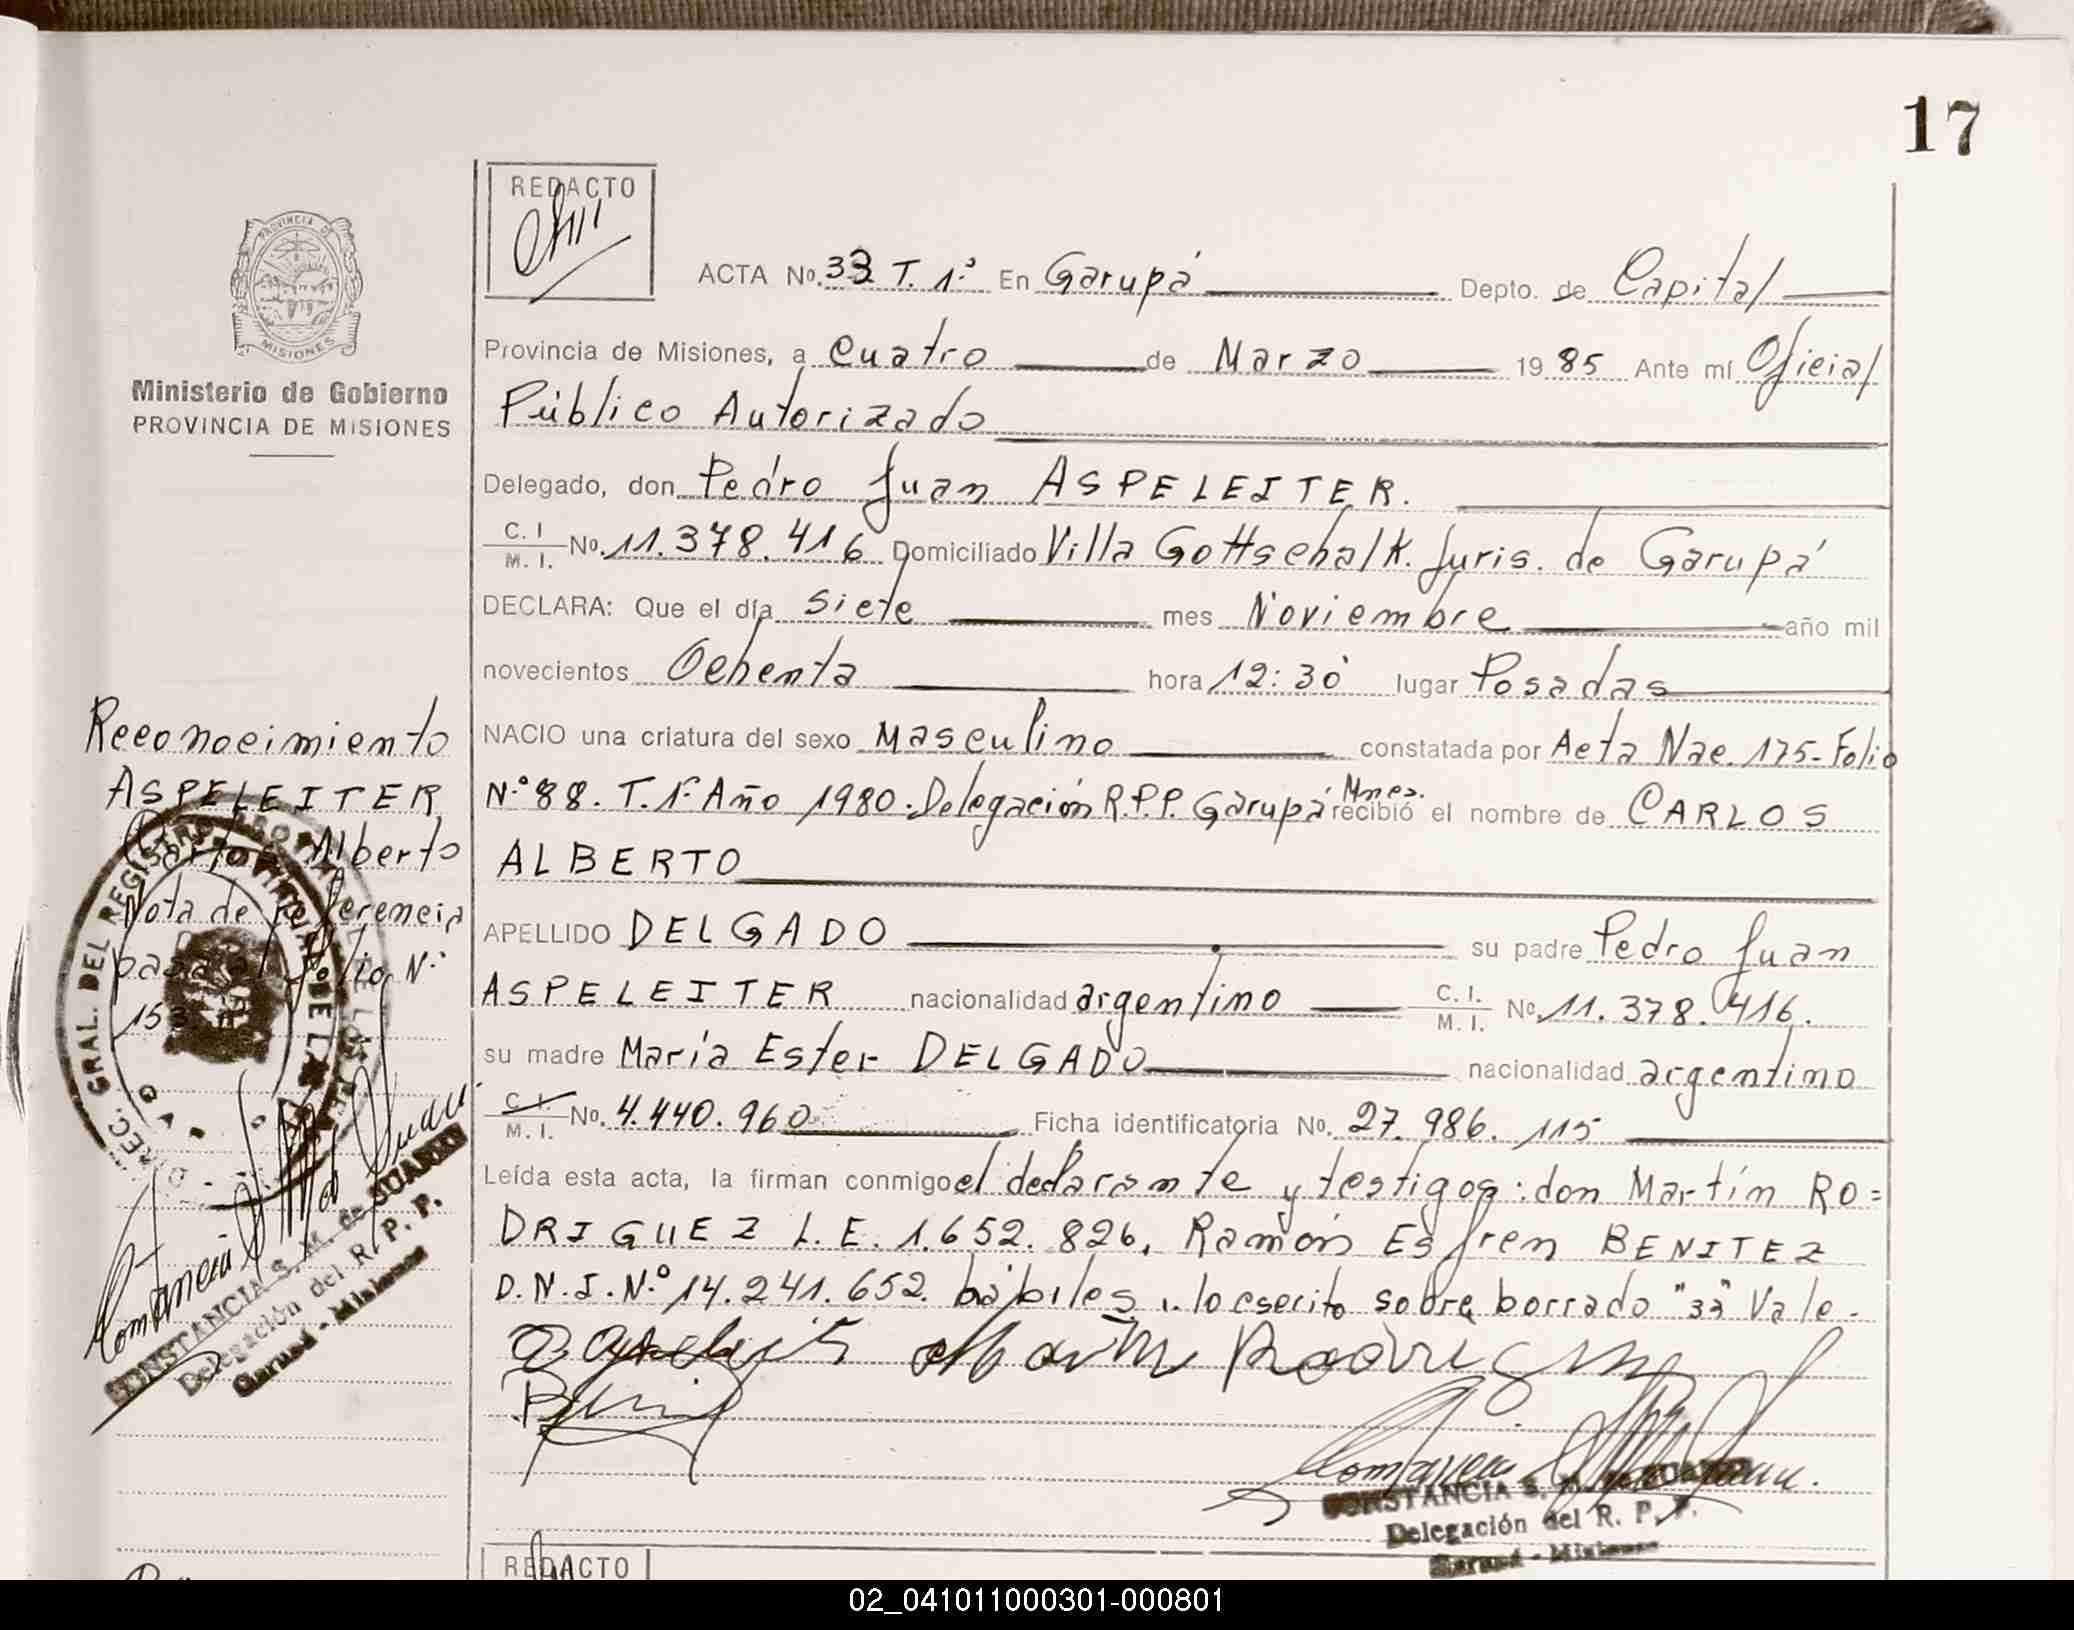 17
REDACTO
PROVINCIA DE
MISIONES
Ministerio de Gobierno
PROVINCIA DE MISIONES
ACTA No. 33 T. 1º En Garupá Depto. de Capital
Provincia de Misiones, a Cuatro de Marzo 1985 Ante mí Oficial
Público Autorizado
Delegado, don Pedro Juan ASPELEITER.
C. I. / M. I. No. 11.378.416 Domiciliado Villa Gottschalk. Juris. de Garupá
DECLARA: Que el día Siete mes Noviembre año mil
novecientos Ochenta hora 12:30 lugar Posadas
NACIO una criatura del sexo Masculino constatada por Acta Nac. 175-Folio
Nº 88. T. 1º Año 1980. Delegación R.P.P. Garupá Mnes. recibió el nombre de CARLOS
ALBERTO
APELLIDO DELGADO su padre Pedro Juan
ASPELEITER nacionalidad argentino C. I. / M. I. No. 11.378.416.
su madre María Ester DELGADO nacionalidad argentino
C. I. / M. I. No. 4.440.960 Ficha identificatoria No. 27.986.115
Leída esta acta, la firman conmigo el declarante y testigos: don Martín RO=
DRIGUEZ L.E. 1.652.826, Ramón Esfren BENITEZ
D.N.I. Nº 14.241.652 hábiles lo escrito sobre borrado "33" Vale.-
Martin Rodriguez
CONSTANCIA S.
Delegación del R. P. P.
Garupá - Misiones
Reconocimiento
ASPELEITER
Carlos Alberto
Nota de referencia
pasa al folio Nº
DIREC. GRAL. DEL REGISTRO
CONSTANCIA S. M. de SUAREZ
Delegación del R. P. P.
Garupá - Misiones
REDACTO
02_041011000301-000801